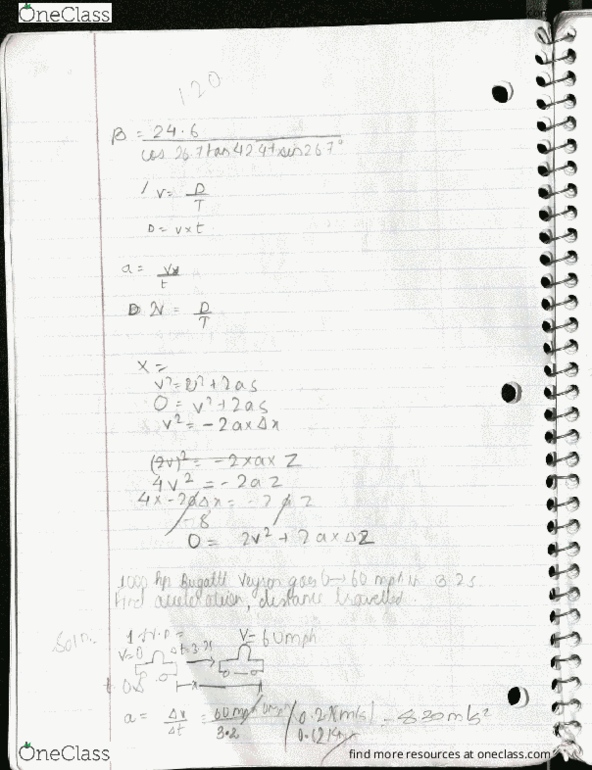 OneClass
120
B = 24.6
cos 26.7 tan 42.4 + sin 26.7°
V = D
T
D = v×t
a =
t
V = D
T
X =
V² = v² + 2as
0 = v² + 2as
V² = -2a×Δx
(2v)² = -2×a× Z
4V² = -2aZ
4x -2aΔx = -2 Z
-8
0 = 2v² + 2a×ΔZ
1000 hp Bugatti Veyron goes 0→60 mph in 3.2s.
Find acceleration, distance travelled.
Soln.
V=0
V=60mph
a = Δv = 60mph
Δt 3.2
OneClass
find more resources at oneclass.com